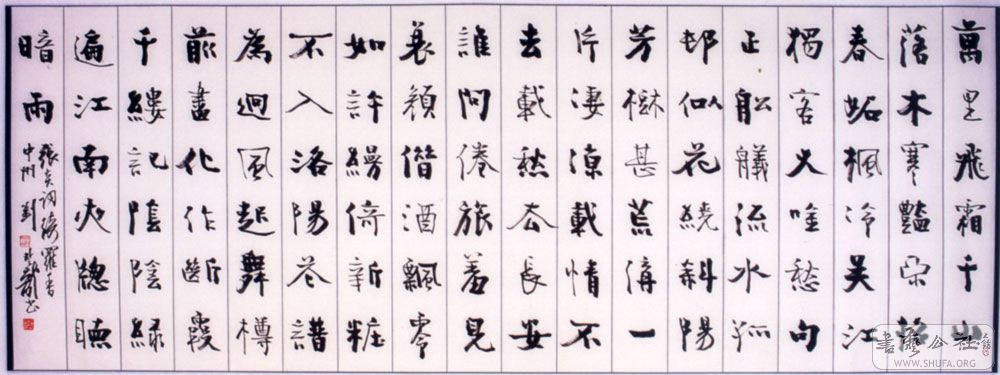 萬里飛霜千
落木寒豔不招
春妬楓冷吳江
獨客又唫愁句
正船艤流水孤
邨似花繞斜陽
芳樹甚荒溝一
片淒涼載情不
去載愁去長安
誰問倦旅羞見
衰顏借酒飄零
如許縵倚新粧
不入洛陽花譜
為迴風起舞樽
前盡化作斷霞
千縷記陰陰綠
遍江南夜窗聽
暗雨
張炎詞綺羅香
中州劉
書藝公社
WWW.SHUFA.ORG